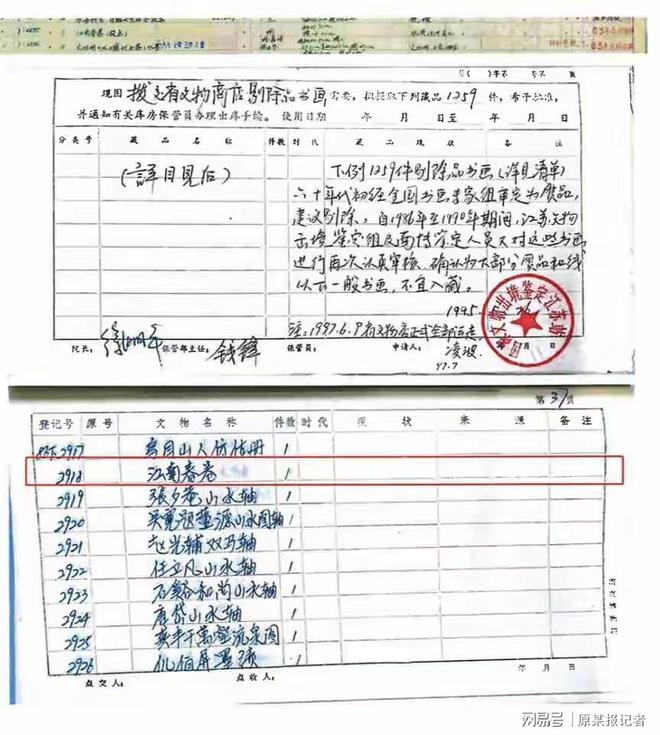 第( )字第 号
现因拨交省文物商店剔除品书画需要，拟提取下列藏品1259件，希予批准，
并通知有关库房保管员办理出库手续。使用日期 年 月 日至 年 月 日
分类号 藏品名称 件数 时代 藏品现状 备注
(詳目見后)
下例1259件剔除品书画(详见清单)
六十年代初经全国书画专家组审定为赝品，
建议剔除。自1986年至1990年期间，江苏文物
出境鉴定组及南博鉴定人员又对这些书画
进行再次认真审核，确认为大部分赝品和线
以下一般书画，不宜入藏。
1995.
注：1997.6.9省文物店正式全部运走
院长： 徐湖平 保管部主任： 钱锋 保管员： 申请人： 凌波
97.7
年 月 日
国家文物出境鉴定江苏站
第37页
登记号 原号 文物名称 件数 时代 现状 来源 备注
2917 1
2918 江南春卷 1
2919 張夕庵山水轴 1
2920 吴寬题董源山水图轴 1
2921 赵光辅双马轴 1
2922 任立凡山水轴 1
2923 石谿和尚山水轴 1
2924 唐岱山水轴 1
2925 奚丰千萬壑流泉图 1
2926 仇伯屏墨蹟 1
点交人： 点收人： 年 月 日
网易号 | 原某报记者